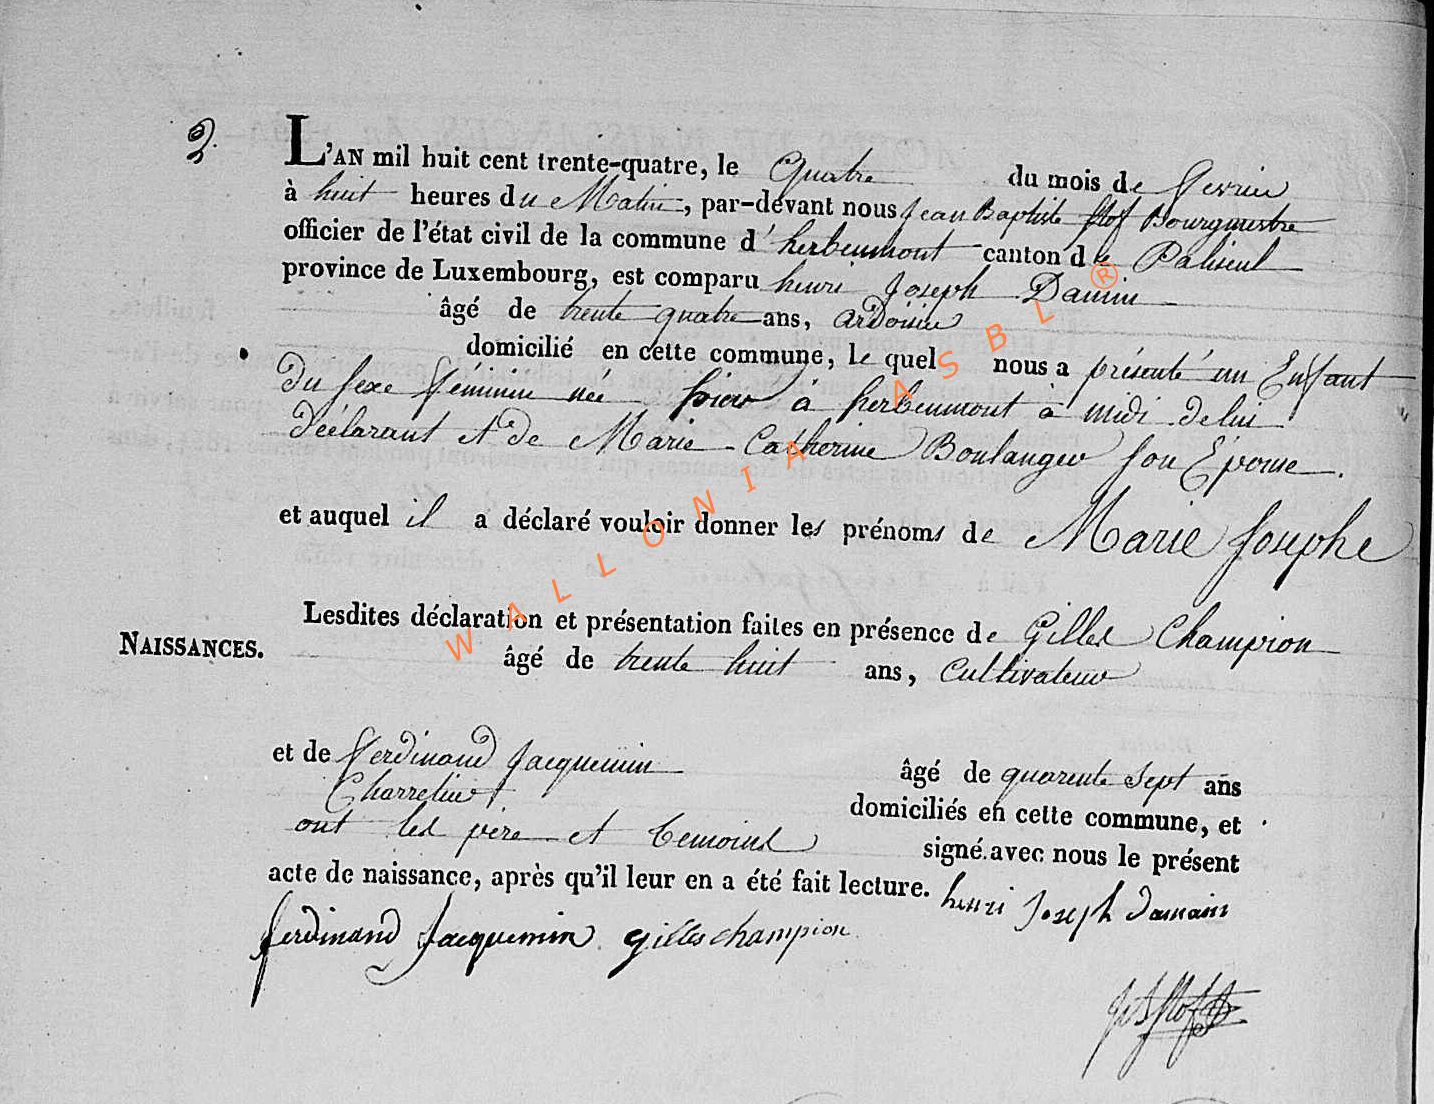 2.
L'AN mil huit cent trente-quatre, le Quatre du mois de fevrier
à huit heures du Matin, par-devant nous Jean Baptiste Bourgmestre
officier de l'état civil de la commune d'herbeumont canton de Paliseul
province de Luxembourg, est comparu henri Joseph Damin
âgé de trente quatre ans, ardoisier
domicilié en cette commune, le quel nous a présenté un Enfant
du sexe féminin née hier à herbeumont à midi de lui
déclarant et de Marie Catherine Boulanger son Epouse.
et auquel il a déclaré vouloir donner les prénoms de Marie Josephe
NAISSANCES.
Lesdites déclaration et présentation faites en présence de Gilles Champion
âgé de trente huit ans, cultivateur
et de ferdinand Jacquemin âgé de quarente sept ans
Charretier domiciliés en cette commune, et
ont les père et temoins signé avec nous le présent
acte de naissance, après qu'il leur en a été fait lecture.
henri Joseph damain
ferdinand Jacquemin gilles champion
WALLONIA ASBL ®